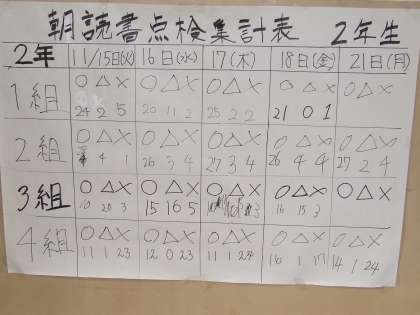 朝読書点検集計表 2年生
2年 11/15日(火) 16日(水) 17(木) 18日(金) 21日(月)
1組 ○△× ○△× ○△× ○△× ○△
24 2 5 20 11 2 25 2 2 21 0 1
2組 ○△× ○△× ○△× ○△× ○△×
4 1 26 3 4 27 3 4 26 4 4 27 2 4
3組 ○△× ○△× ○△× ○△× ○△×
10 20 3 15 16 5 16 15 3
4組 ○△× ○△× ○△× ○△× ○△×
11 1 23 12 0 23 11 1 24 16 1 17 14 1 24